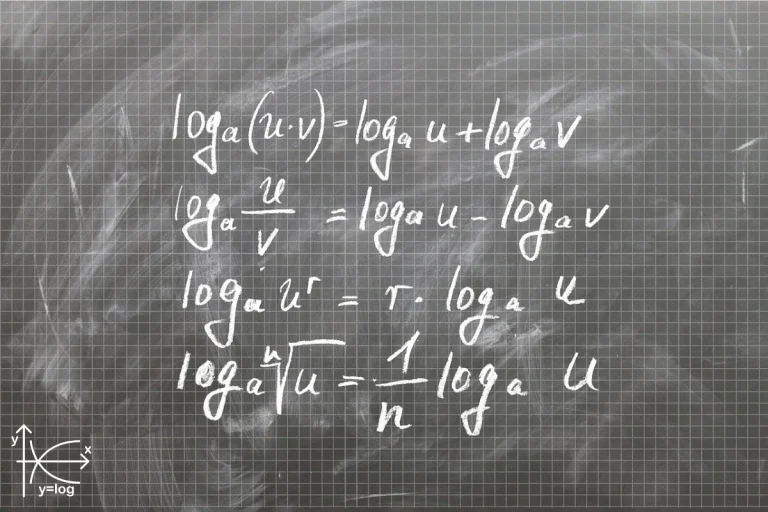 logₐ(u·v)=logₐ u+logₐ v
logₐ u/v = logₐ u - logₐ v
logₐ uʳ = r· logₐ u
logₐ ⁿ√u = 1/n logₐ u
y
x
y=log